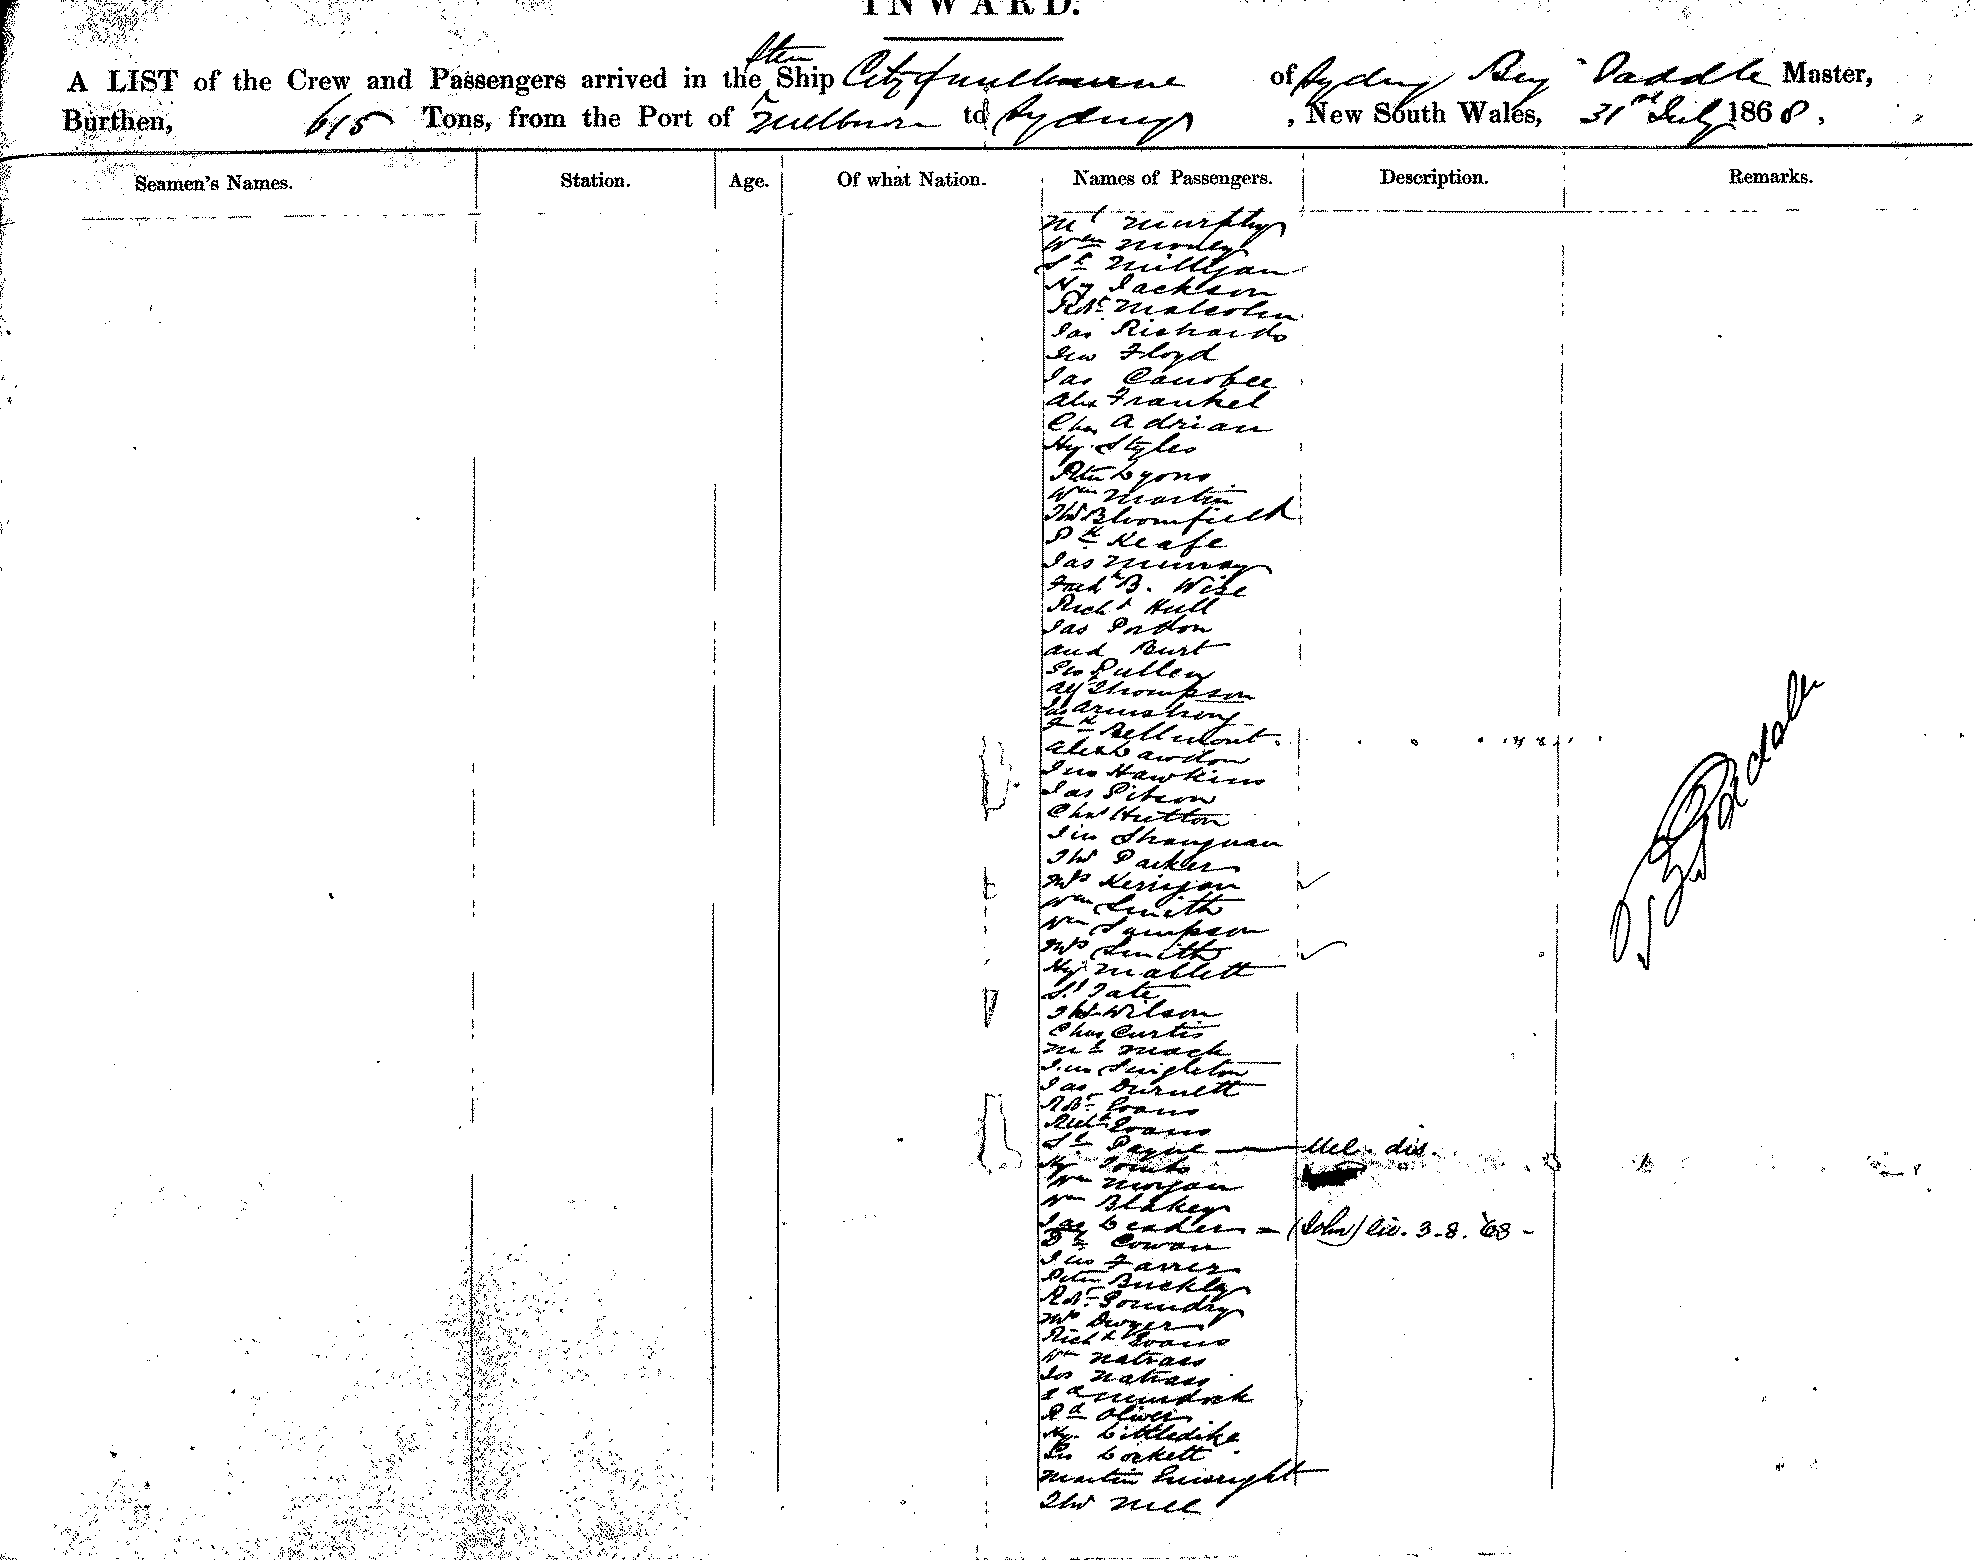 INWARD.
A LIST of the Crew and Passengers arrived in the Ship City of Melbourne of Sydney Paddle Master,
Burthen, 615 Tons, from the Port of Melbourne to Sydney, New South Wales, 31st July 1868,
Seamen's Names. Station. Age. Of what Nation. Names of Passengers. Description. Remarks.
Murphy
Wm Money
Milligan
Hy Jackson
Robt Malcolm
Jas Richards
Floyd
Jas Canobee
Alex Frankel
Chas Adrian
Hy Styles
Peter Lyons
Wm Martin
Thos Bloomfield
Pk Keafe
Jas Murray
Fredk B. Wise
Richd Hull
Jas
And Burt
Geo Pullen
Alf Thompson
Jas Armstrong
Bellmont
Alex Lawdon
Jno Hawkins
Jas Gibson
Chas Hutton
Jno
Thos Parker
Mrs Kerrigan
Wm Smith
Wm Sampson
Mrs Smith
Hy Mallett
Sl Tate
Thos Wilson
Chas Curtis
Mack
Jno Singleton
Jas Durnett
Robt Evans
Richd Evans
Sl Payne — Mel. dis.
Hy
Wm Morgan
Wm Blakey
Jas Leader - (John) liv. 3.8.'68 -
Cowan
Jno Farrer
Peter Buckley
Robt
Dwyer
Richd Evans
Wm Natrass
Jos Natrass
Murdock
Rd Oliver
Hy. Littledike
Geo Lorkett
Martin Enwright
Thos Nell
Paddle